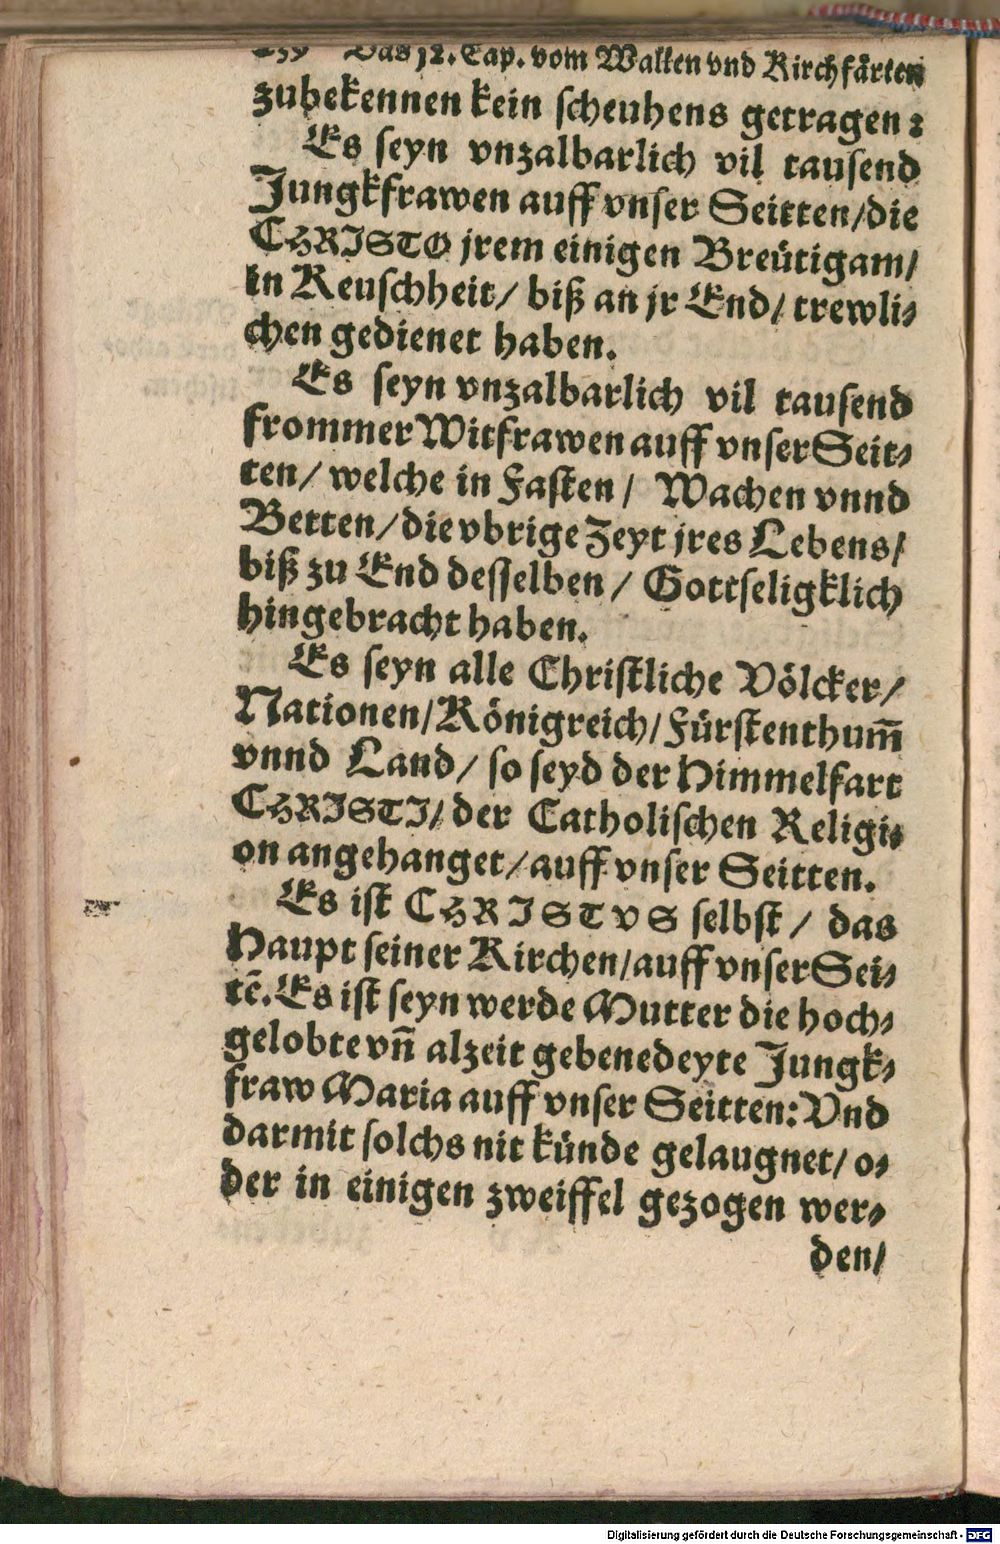 Das 12. Cap. vom Walken vnd Kirchfärten
zubekennen kein scheuhens getragen:
Es seyn vnzalbarlich vil tausend
Jungkfrawen auff vnser Seitten/die
CHRISTO jrem einigen Breütigam/
in Keuschheit/ biß an jr End/ trewli-
chen gedienet haben.
Es seyn vnzalbarlich vil tausend
frommer Witfrawen auff vnser Seit-
ten/ welche in Fasten/ Wachen vnnd
Betten/die vbrige Zeyt jres Lebens/
biß zu End desselben/ Gottseligklich
hingebracht haben.
Es seyn alle Christliche Völcker/
Nationen/Königreich/Fürstenthum̃
vnnd Land/ so seyd der Himmelfart
CHRISTI/ der Catholischen Religi-
on angehanget/auff vnser Seitten.
Es ist CHRISTVS selbst/ das
Haupt seiner Kirchen/auff vnser Sei-
tẽ. Es ist seyn werde Mutter die hoch-
gelobte vñ alzeit gebenedeyte Jungk-
fraw Maria auff vnser Seitten: Vnd
darmit solchs nit künde gelaugnet/ o-
der in einigen zweiffel gezogen wer-
den/
Digitalisierung gefördert durch die Deutsche Forschungsgemeinschaft - DFG